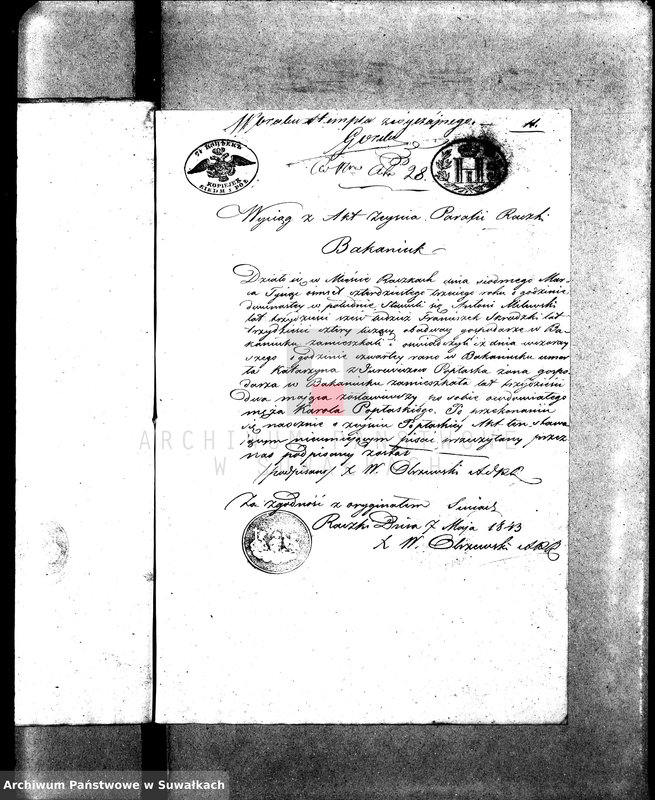 W braku stempla zwyczajnego. 4.
7½ КОПѢЕКЪ
KOPIEJEK
28
Wyciąg z Akt Zejścia Parafii Raczki
Bakaniuk
Działo się w Mieście Raczkach dnia siódmego Mar-
ca Tysiąc ośmset czterdziestego trzeciego roku o godzinie
dwunastej w południe Stawili się Antoni Milewski
lat trzydzieści sześć tudzież Franciszek Skrodzki lat
trzydzieści cztery liczący obadwaj gospodarze w Ba-
kaniuku zamieszkali i oświadczyli iż dnia wczoray
szego o godzinie czwartej rano w Bakaniuku umar-
ła Katarzyna z Popłaska żona gospo-
darza w Bakaniuku zamieszkała lat trzydzieści
dwa mająca zostawiwszy po sobie owdowiałego
męża Karola Popłaskiego. Po przekonaniu
się naocznie o zejściu Popłaskiej Akt ten Stawa
jącym nieumiejącym pisać przeczytany przez
nas podpisany został
/podpisano/ X W. Olszewski
Za zgodność z oryginałem
Raczki Dnia 7 Maja 1843
X W. Olszewski
ARCHIWUM PAŃSTWOWE
W SUWAŁKACH
Archiwum Państwowe w Suwałkach